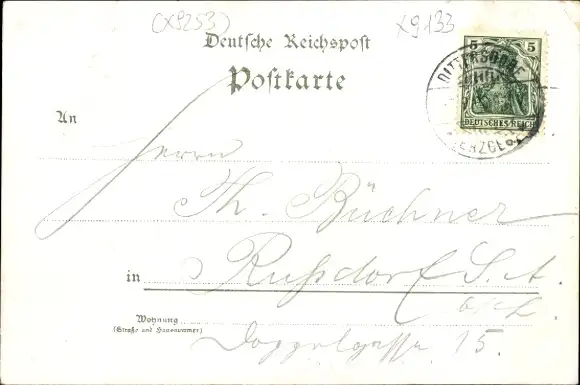 (X9253)
X9133
Deutsche Reichspost
Postkarte
5 5
DITTERSDORF
DEUTSCHES REICH
ERZGEB.
An
Herrn
Th. Büchner
in Rußdorf S. A.
Wohnung
(Straße und Hausnummer)
Doppelgasse 15.